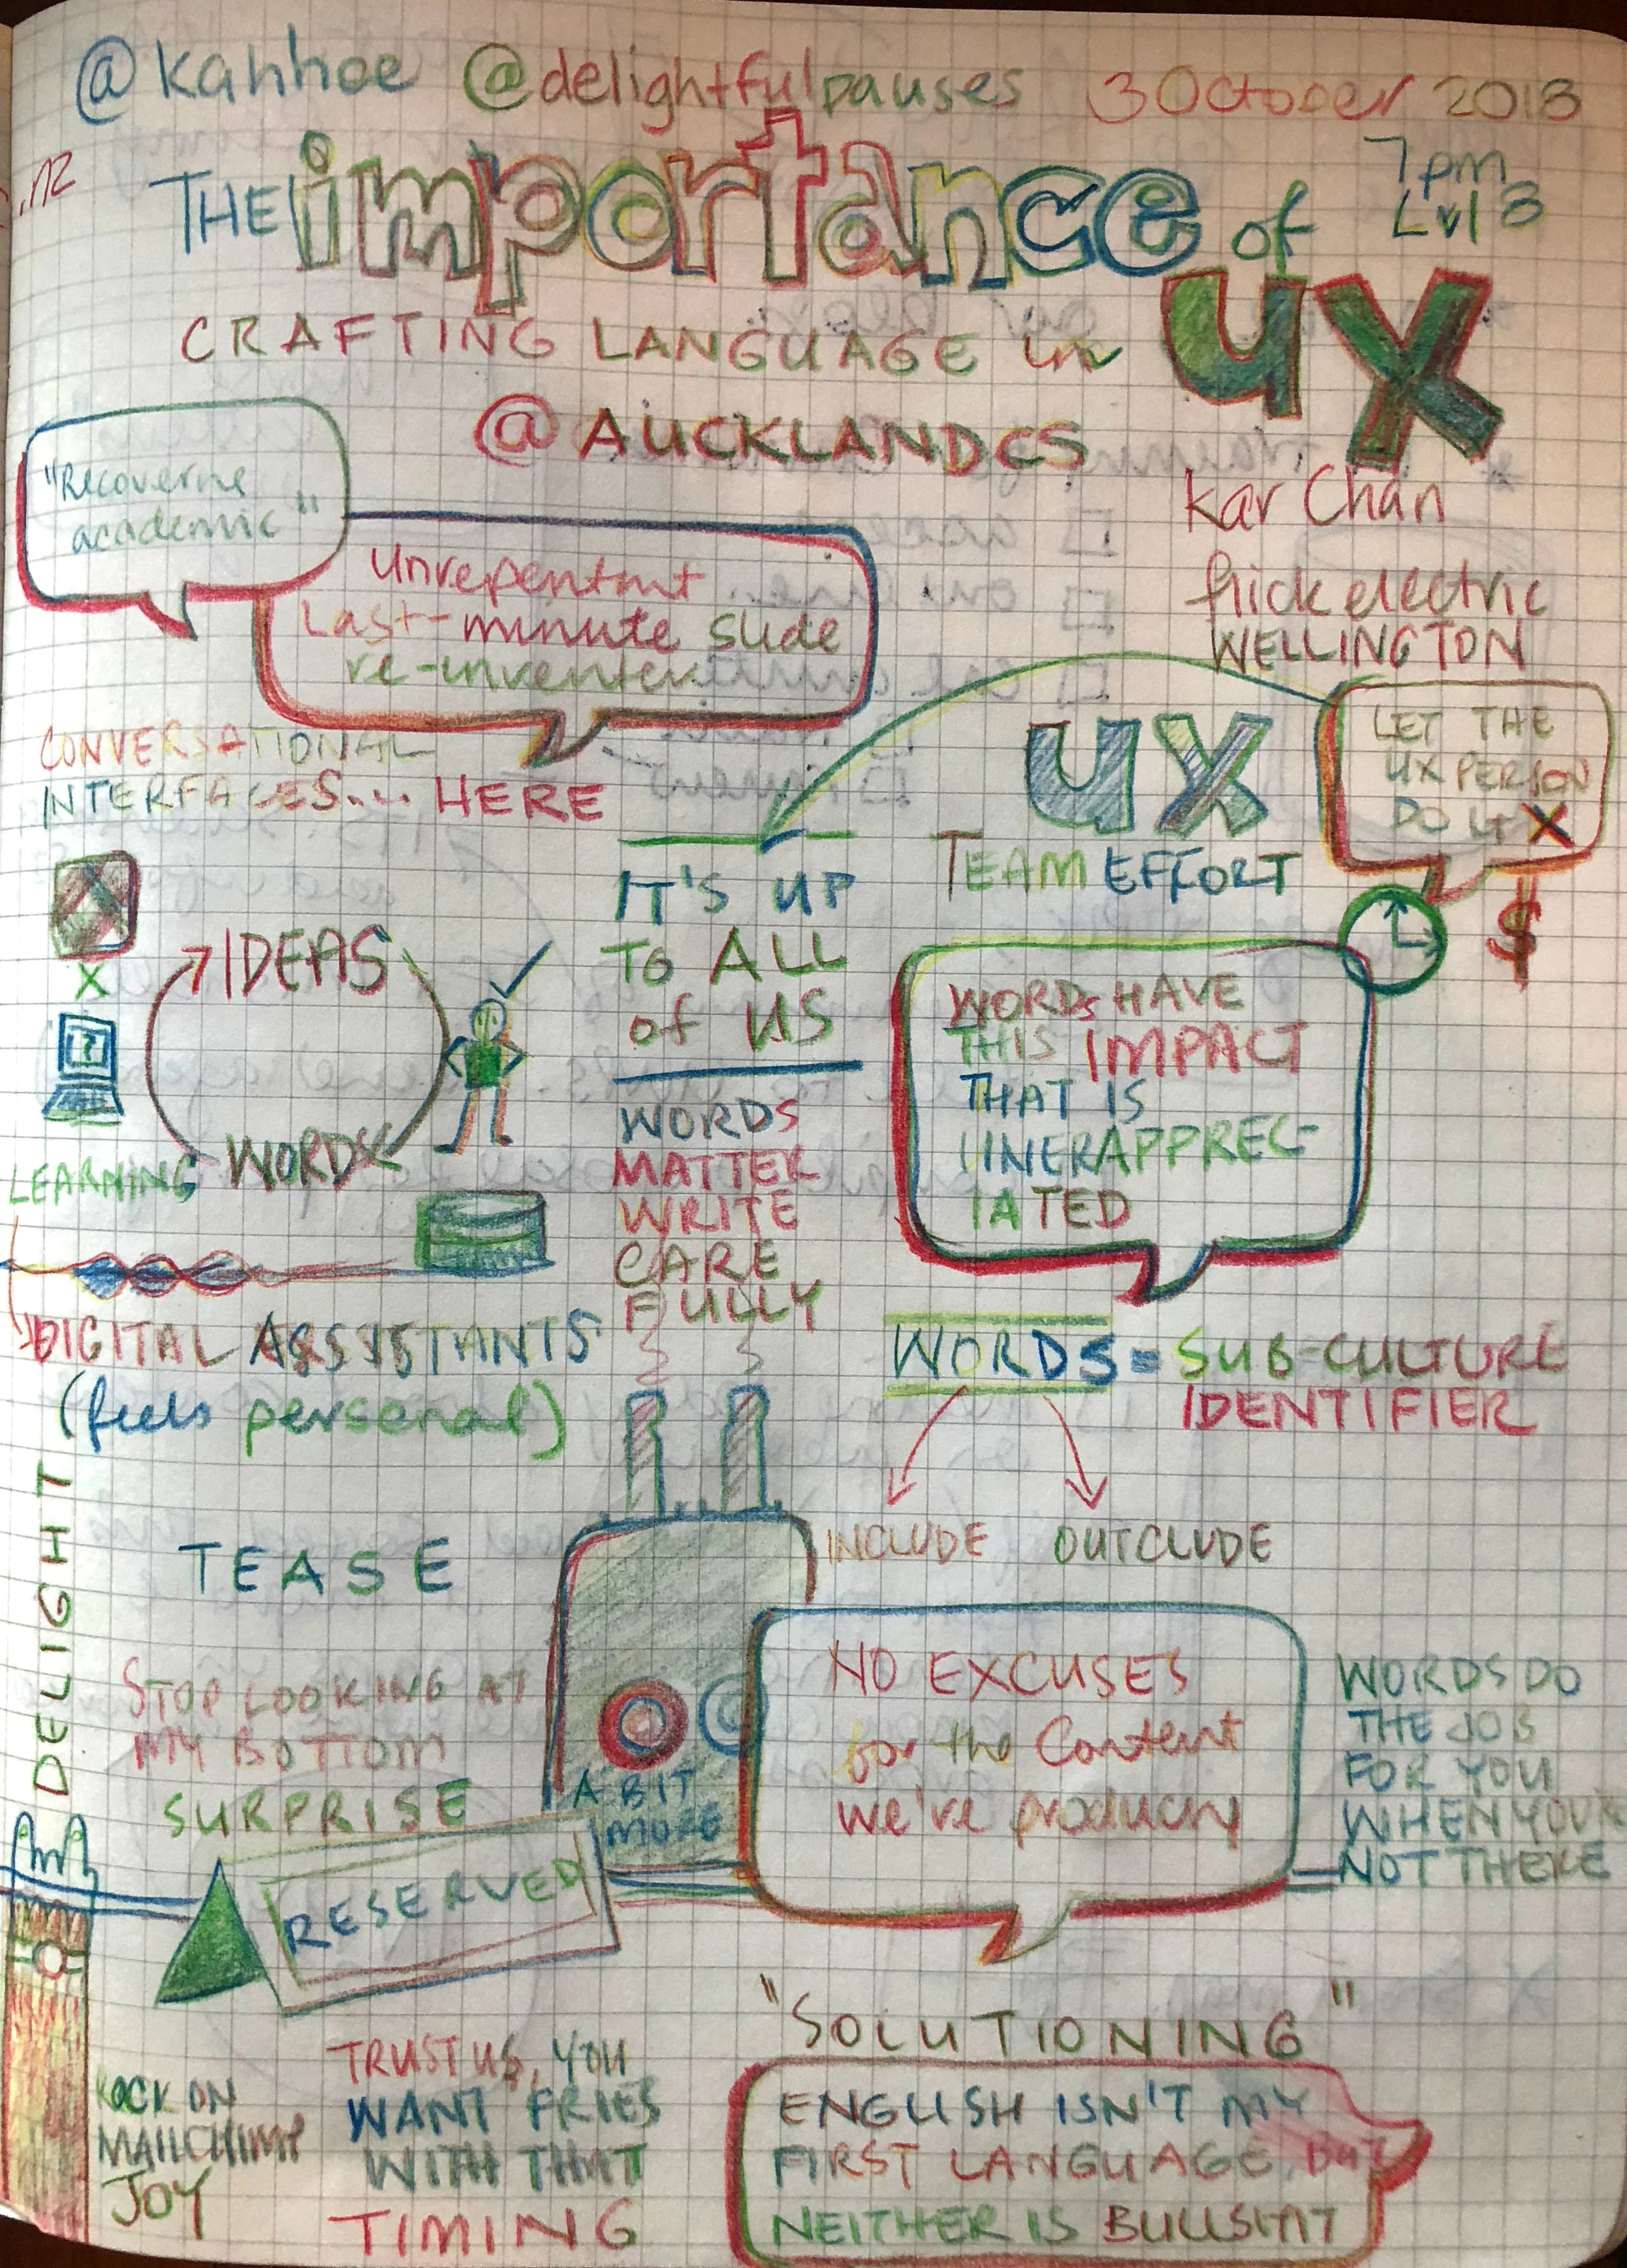 @kahhoe @delightfulpauses 3 October 2018
.nz
7pm
Lvl 8
THE importance of
CRAFTING LANGUAGE in UX
@AUCKLANDCS
Kar Chan
flick electric
WELLINGTON
"Recovering
academic"
Unrepentant
Last-minute slide
re-inventer
CONVERSATIONAL
INTERFACES.... HERE
UX
TEAM EFFORT
LET THE
UX PERSON
DO IT X
$
IT'S UP
TO ALL
of US
IDEAS
X
?
WORDS
LEARNING
WORDS
MATTER
WRITE
CARE
FULLY
WORDS HAVE
THIS IMPACT
THAT IS
UNERAPPREC-
IATED
DIGITAL ASSISTANTS
(feels personal)
WORDS = SUB-CULTURE
IDENTIFIER
INCLUDE OUTCLUDE
DELIGHT
TEASE
STOP LOOKING AT
MY BOTTOM
SURPRISE
A BIT
MORE
RESERVED
NO EXCUSES
for the Content
we're producing
WORDS DO
THE JOB
FOR YOU
WHEN YOU'RE
NOT THERE
ROCK ON
MAILCHIMP
JOY
TRUST US, YOU
WANT FRIES
WITH THAT
TIMING
"SOLUTIONING"
ENGLISH ISN'T MY
FIRST LANGUAGE, BUT
NEITHER IS BULLSHIT